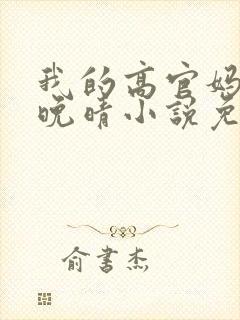 我的高官妈
晚晴小说免
俞书杰